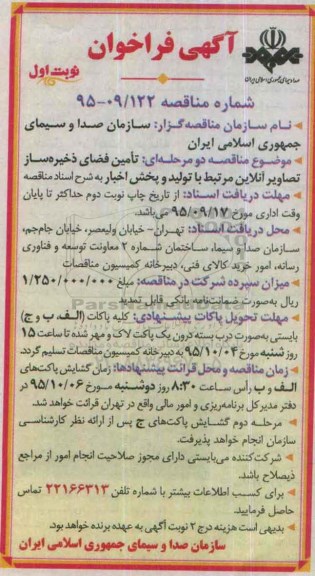 آگهی فراخوان
صدا و سیمای جمهوری اسلامی ایران
نوبت اول
شماره مناقصه ۰۹/۱۲۲-۹۵
نام سازمان مناقصه‌گزار: سازمان صدا و سیمای
جمهوری اسلامی ایران
موضوع مناقصه دو مرحله‌ای: تأمین فضای ذخیره‌ساز
تصاویر آنلاین مرتبط با تولید و پخش اخبار به شرح اسناد مناقصه
مهلت دریافت اسناد: از تاریخ چاپ نوبت دوم حداکثر تا پایان
وقت اداری مورخ ۹۵/۰۹/۱۷ می‌باشد.
محل دریافت اسناد: تهران- خیابان ولیعصر، خیابان جام‌جم،
سازمان صدا و سیما، ساختمان شماره ۲ معاونت توسعه و فناوری
رسانه، امور خرید کالای فنی، دبیرخانه کمیسیون مناقصات
میزان سپرده شرکت در مناقصه: مبلغ ۱/۲۵۰/۰۰۰/۰۰۰
ریال به‌صورت ضمانت‌نامه بانکی قابل تمدید
مهلت تحویل پاکات پیشنهادی: کلیه پاکات (الف، ب و ج)
بایستی به‌صورت درب بسته درون یک پاکت لاک و مهر شده تا ساعت ۱۵
روز شنبه مورخ ۹۵/۱۰/۰۴ به دبیرخانه کمیسیون مناقصات تسلیم گردد.
زمان مناقصه و محل قرائت پیشنهادها: زمان گشایش پاکت‌های
الف و ب رأس ساعت ۸:۳۰ روز دوشنبه مورخ ۹۵/۱۰/۰۶ در
دفتر مدیرکل برنامه‌ریزی و امور مالی واقع در تهران قرائت خواهد شد.
مرحله دوم گشایش پاکت‌های ج پس از ارائه نظر کارشناسی
سازمان انجام خواهد پذیرفت.
شرکت‌کننده می‌بایستی دارای مجوز صلاحیت انجام امور از مراجع
ذیصلاح باشد.
برای کسب اطلاعات بیشتر با شماره تلفن ۲۲۱۶۶۳۱۳ تماس
حاصل فرمایید.
بدیهی است هزینه درج ۲ نوبت آگهی به عهده برنده خواهد بود.
سازمان صدا و سیمای جمهوری اسلامی ایران